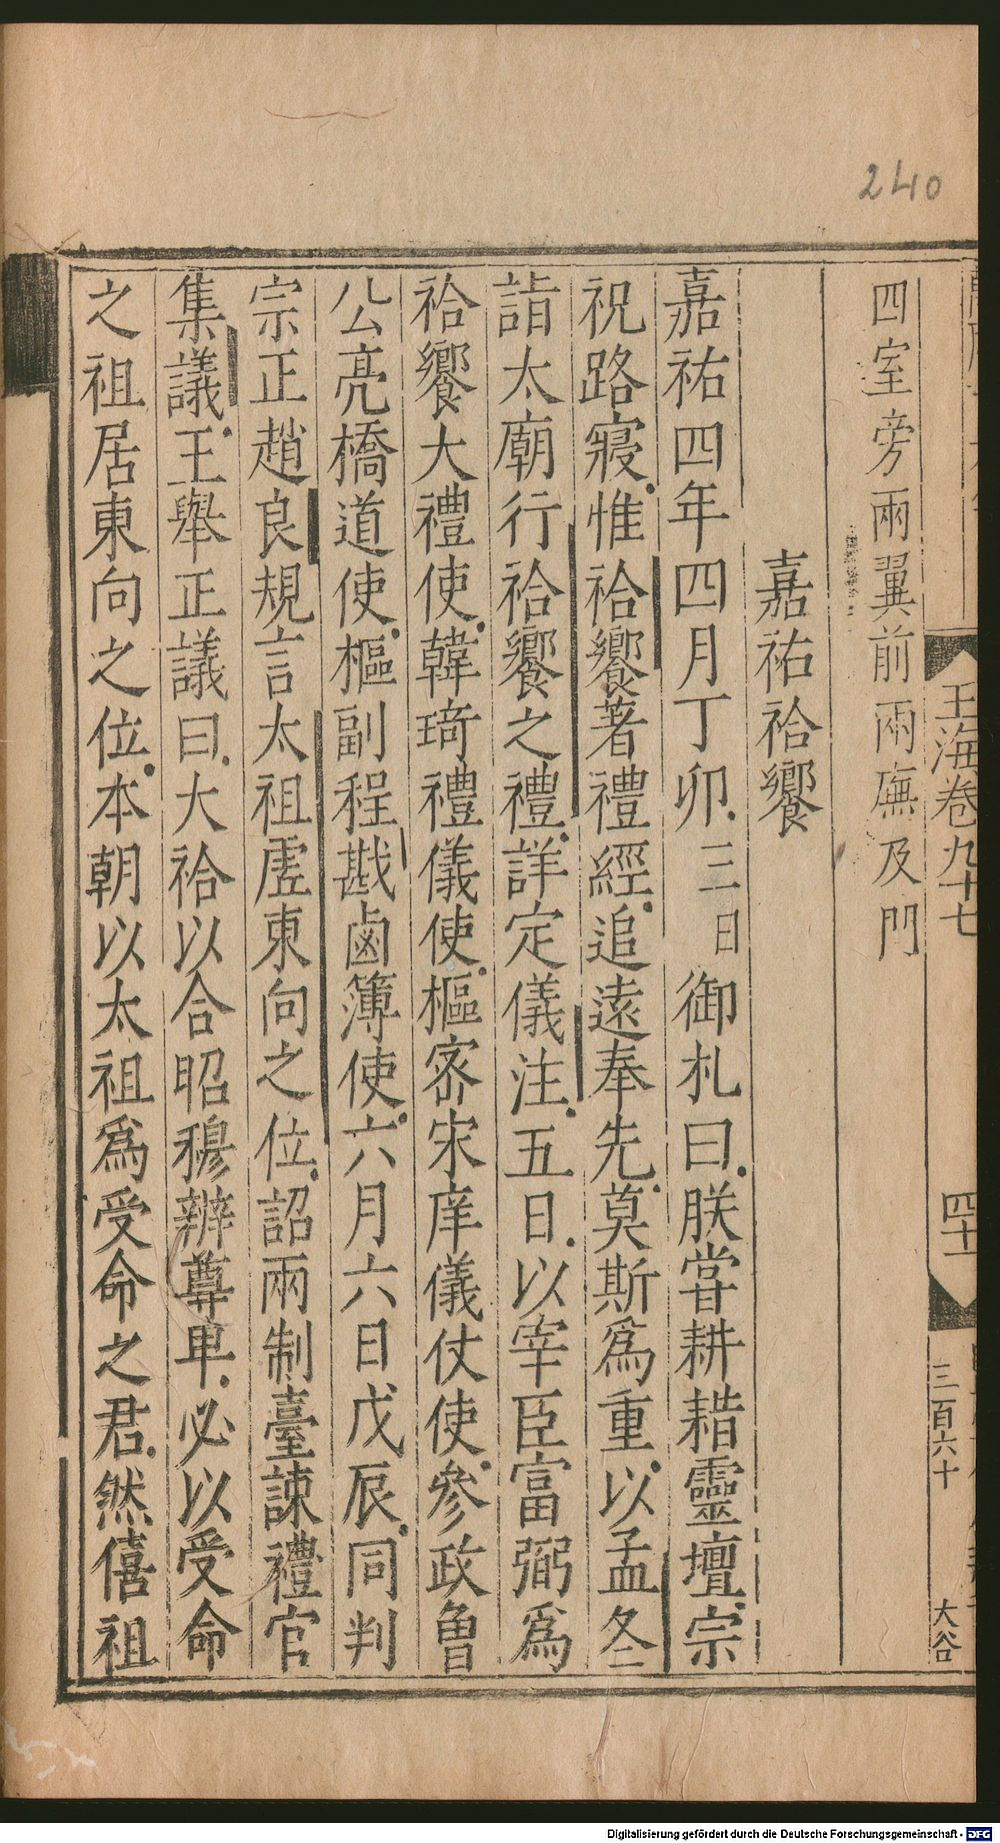 240
四室旁兩翼前兩廡及門
嘉祐祫饗
嘉祐四年四月丁卯三日御札曰朕甞耕耤靈壇宗
祝路寢惟祫饗著禮經追遠奉先莫斯爲重以孟冬
詣太廟行祫饗之禮詳定儀注五日以宰臣富弼爲
祫饗大禮使韓琦禮儀使樞宻宋庠儀仗使參政魯
公亮橋道使樞副程戡鹵簿使六月六日戊辰同判
宗正趙良規言太祖虗東向之位詔兩制臺諫禮官
集議王舉正議曰大祫以合昭穆辨尊卑必以受命
之祖居東向之位本朝以太祖爲受命之君然僖祖
玉海卷九十七
四十一
三百六十
大谷
Digitalisierung gefördert durch die Deutsche Forschungsgemeinschaft - DFG